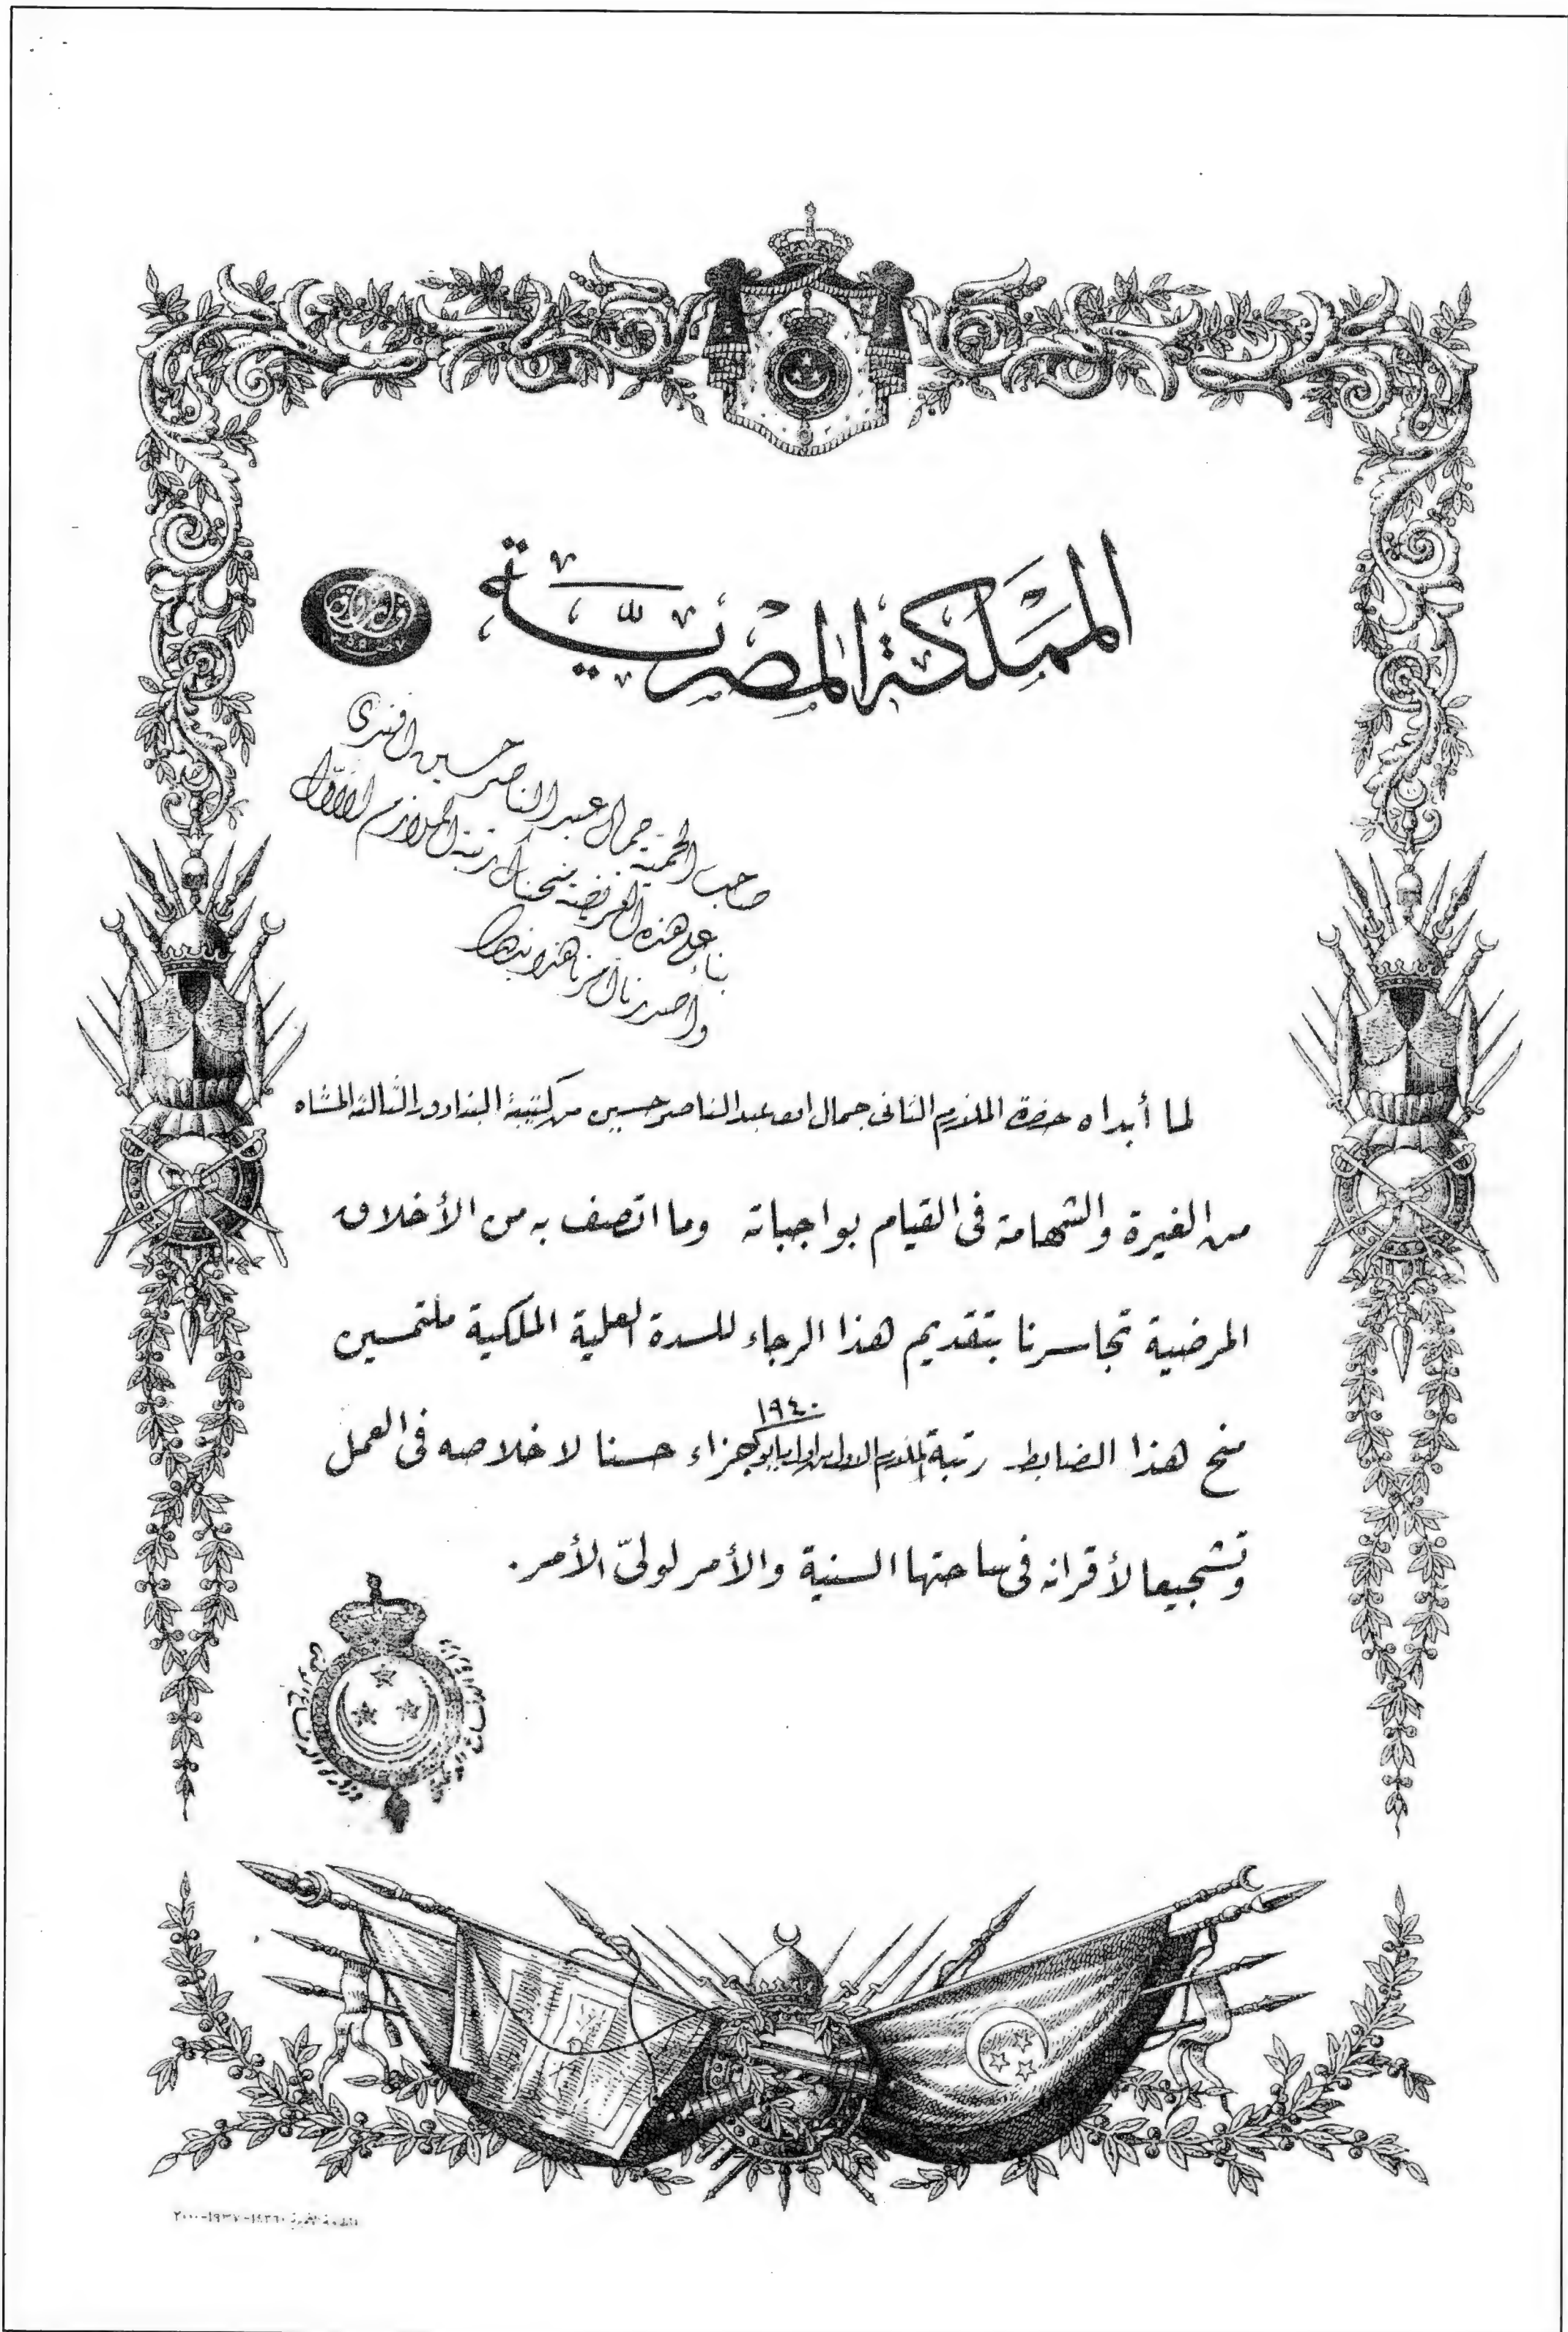 المملكة المصرية
صاحب الحمية جمال عبد الناصر حسين افندى
بناء على هذه العريضة منحناك رتبة الملازم الأول
واصدرنا امرنا هذا بذلك
لما أبداه حضرة الملازم الثانى جمال عبد الناصر حسين من كتيبة البنادق الثالثة المشاه
من الغيرة والشهامة فى القيام بواجباته وما اتصف به من الأخلاق
المرضية تجاسرنا بتقديم هذا الرجاء للسدة العلية الملكية ملتمسين
منح هذا الضابط رتبة الملازم الاول من اول مايو ١٩٤٠ جزاء حسنا لاخلاصه فى العمل
وتشجيعا لأقرانه فى ساحتها السنية والأمر لولىّ الأمر.